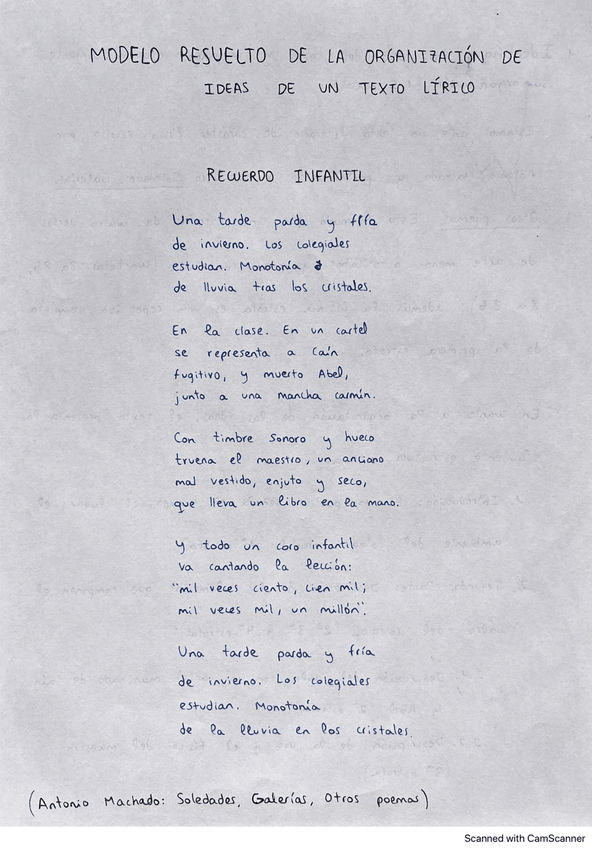 MODELO RESUELTO DE LA ORGANIZACIÓN DE
IDEAS DE UN TEXTO LÍRICO
RECUERDO INFANTIL
Una tarde parda y fría
de invierno. Los colegiales
estudian. Monotonía
de lluvia tras los cristales.
En la clase. En un cartel
se representa a Caín
fugitivo, y muerto Abel,
junto a una mancha carmín.
Con timbre sonoro y hueco
truena el maestro, un anciano
mal vestido, enjuto y seco,
que lleva un libro en la mano.
Y todo un coro infantil
va cantando la lección:
"mil veces ciento, cien mil;
mil veces mil, un millón".
Una tarde parda y fría
de invierno. Los colegiales
estudian. Monotonía
de la lluvia en los cristales.
(Antonio Machado: Soledades, Galerías, Otros poemas)
Scanned with CamScanner